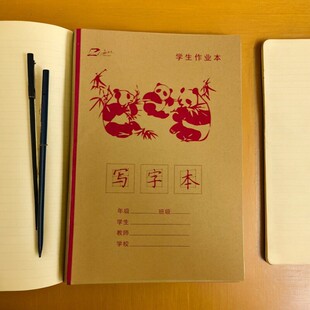 学生作业本
写字本
年级________班级________
学生________________
教师________________
学校________________